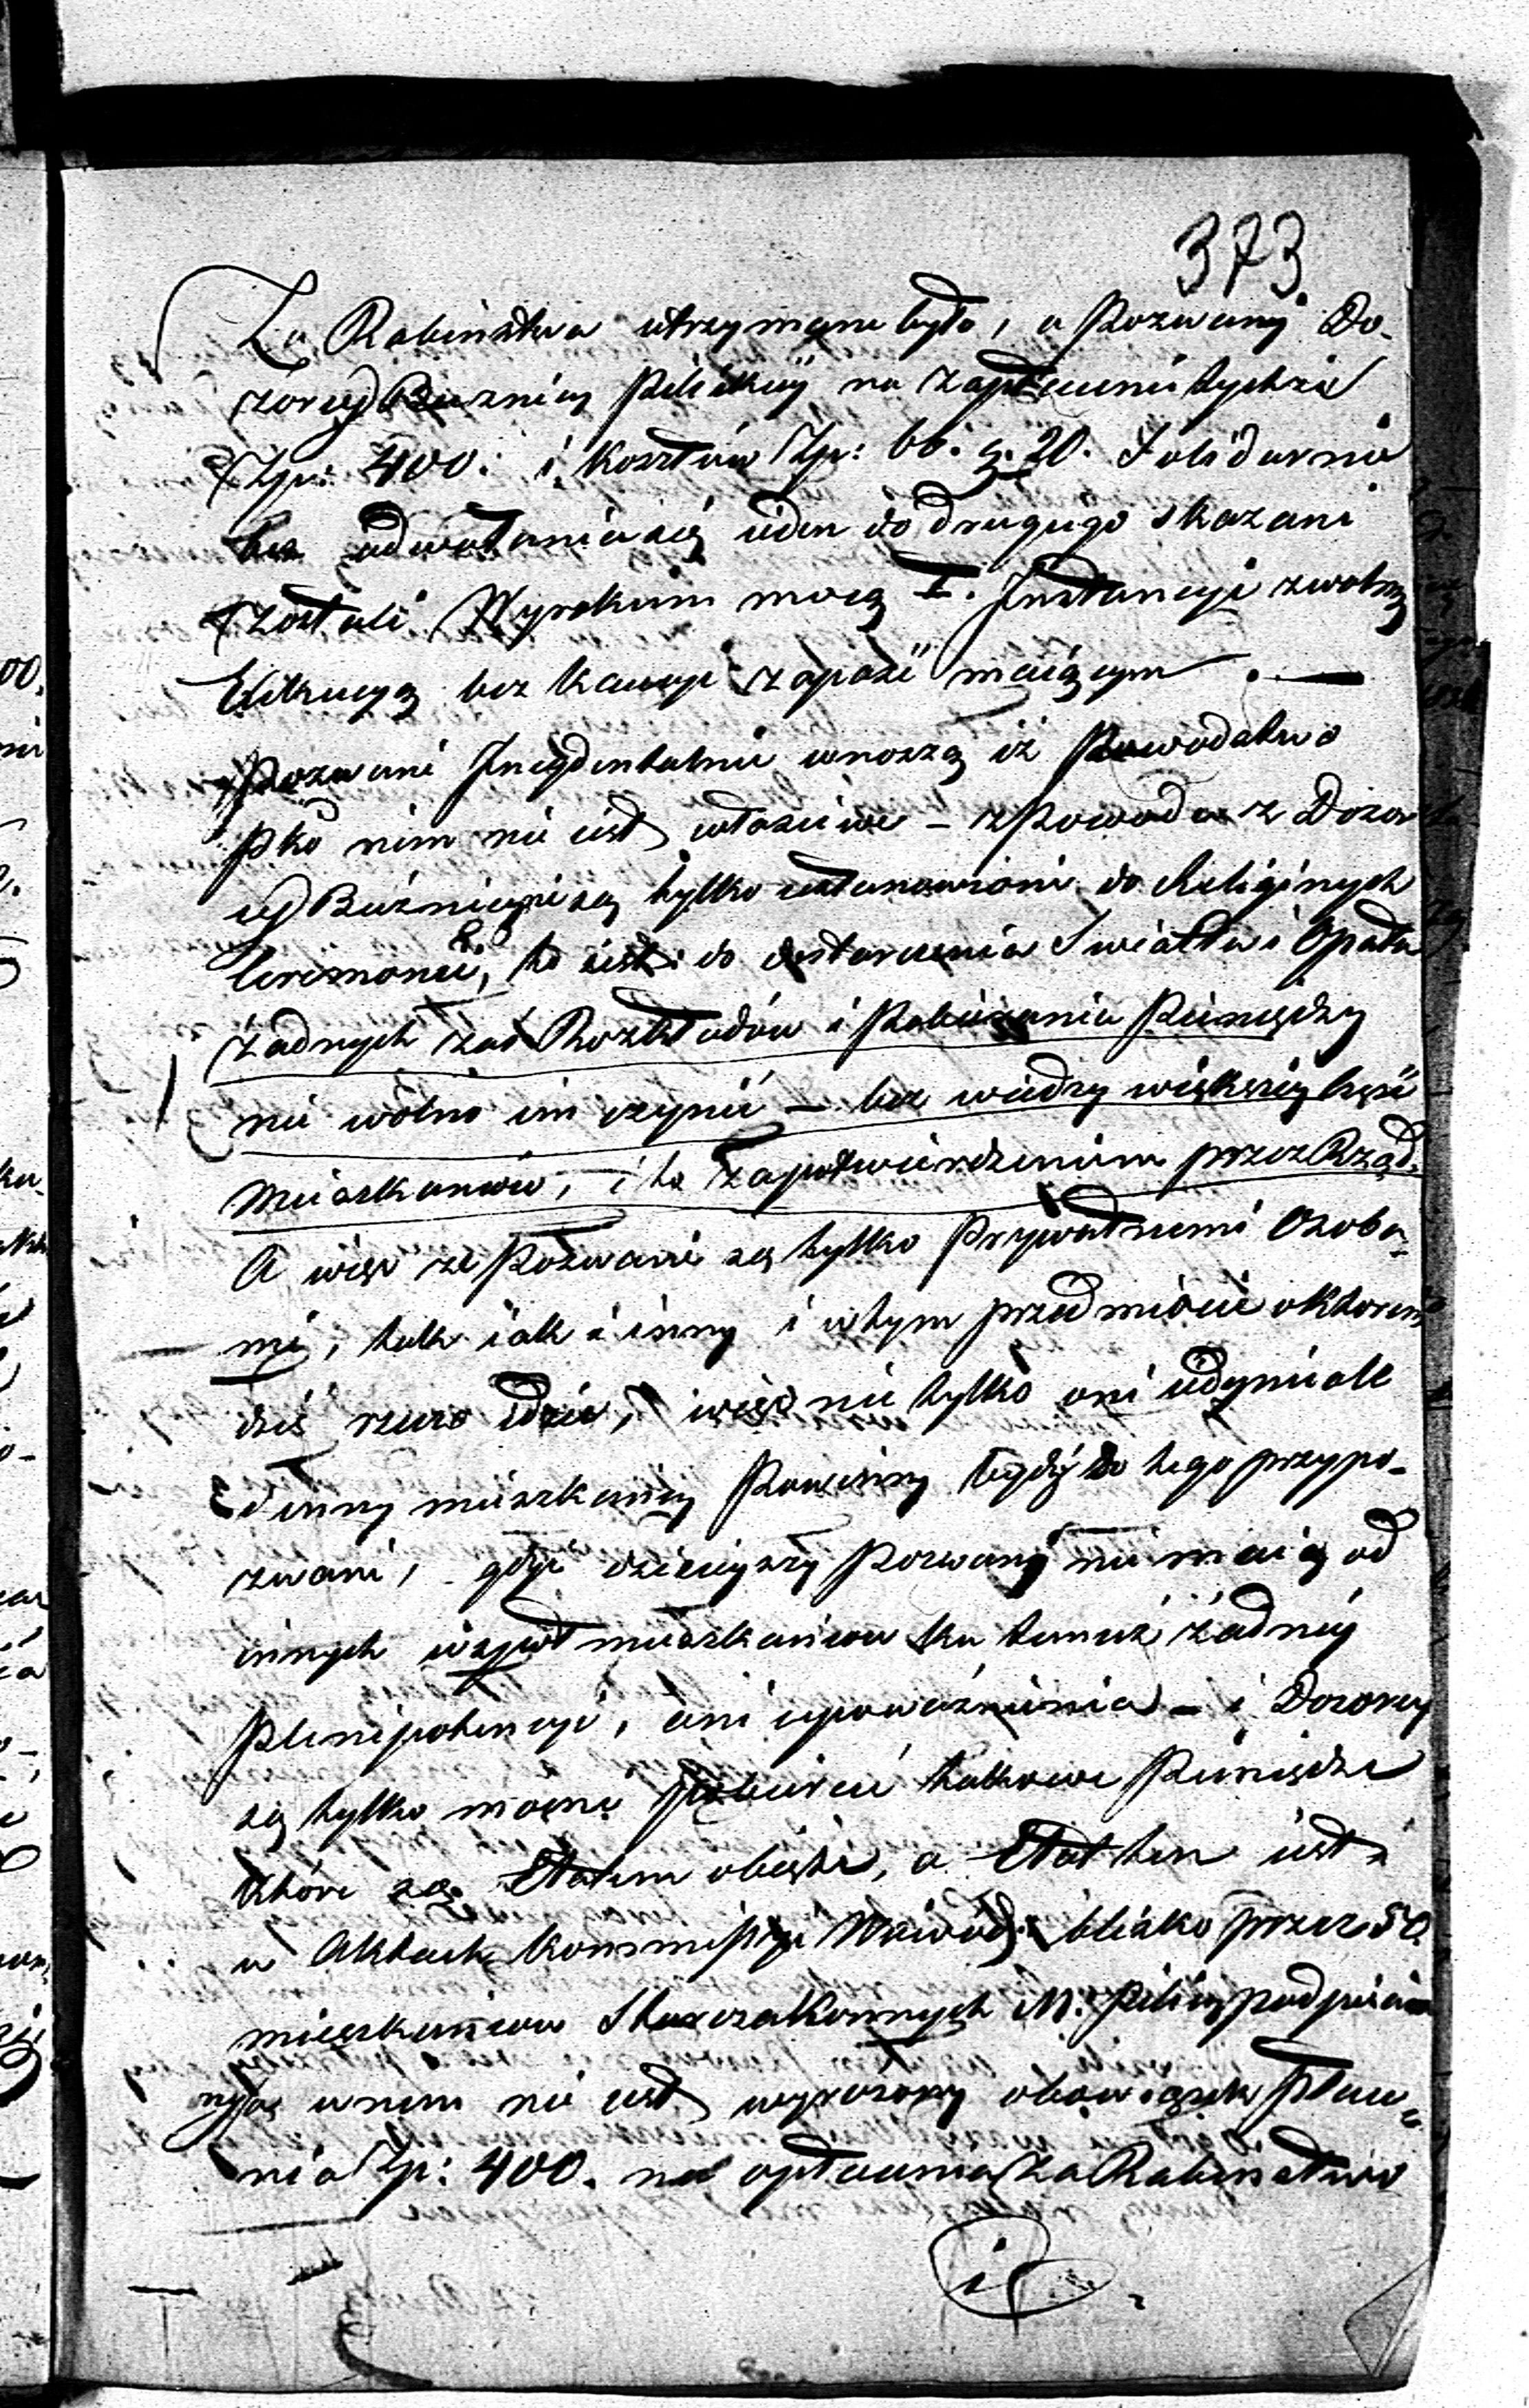 373.
Za Rabinstwa utrzymane było, a Pozwany Do-
zorcy Buznicy Pilickiÿ na Zapłacenie tychże
Złp: 400. i kosztów Złp: 66. g. 20. Solidarnie
bez odwołania się ieden do drugiego skazani
zostali Wyrokiem mocą I. Instancyi zwolną
Exekucyą bez kaucyi zapaść maiącym. —
Pozwani Incydentalnie wnoszą iż Powodztwo
pko nim nie iest właściwe - z Powodu że Dozor
cy Buźnicy są tylko ustanowioni do Religijnych
Ceremonii, to iest: do dostarczenia Swiatła i Opału
żadnych zaś Rozkładów i Pobierania Pieniędzy
nie wolno im czynić — bez wiedzy większéy częśći
Mieszkańców, i to zapotwierdzeniem przez Rząd.
A więc że Pozwani są tylko Prywatnemi Osoba-
mi, tak iak i inny i w tym przedmiocie o którem
dziś rzecz idzie, więc nie tylko oni iedyni ale
i inny mieszkańcy Powinny bydź do tego przypo-
zwani, gdyż dzisieyszy Pozwany nie maią od
innych współ mieszkańców ku temuż żadnéy
Plenipotencyi, ani upoważnienia - i Dozorcy
są tylko mocni pobierać takowe Pieniądze
które są Etatem obięte, a Etat ten iest
w Aktach Kommissyi Woiewódz: iako przez 50.
mieszkańców Starozakonnych M. Pilicy podpisa
ny w nim nie iest wyrażony obowiązek płace-
nia Złp: 400. na opłacenia Za Rabinstwo
i